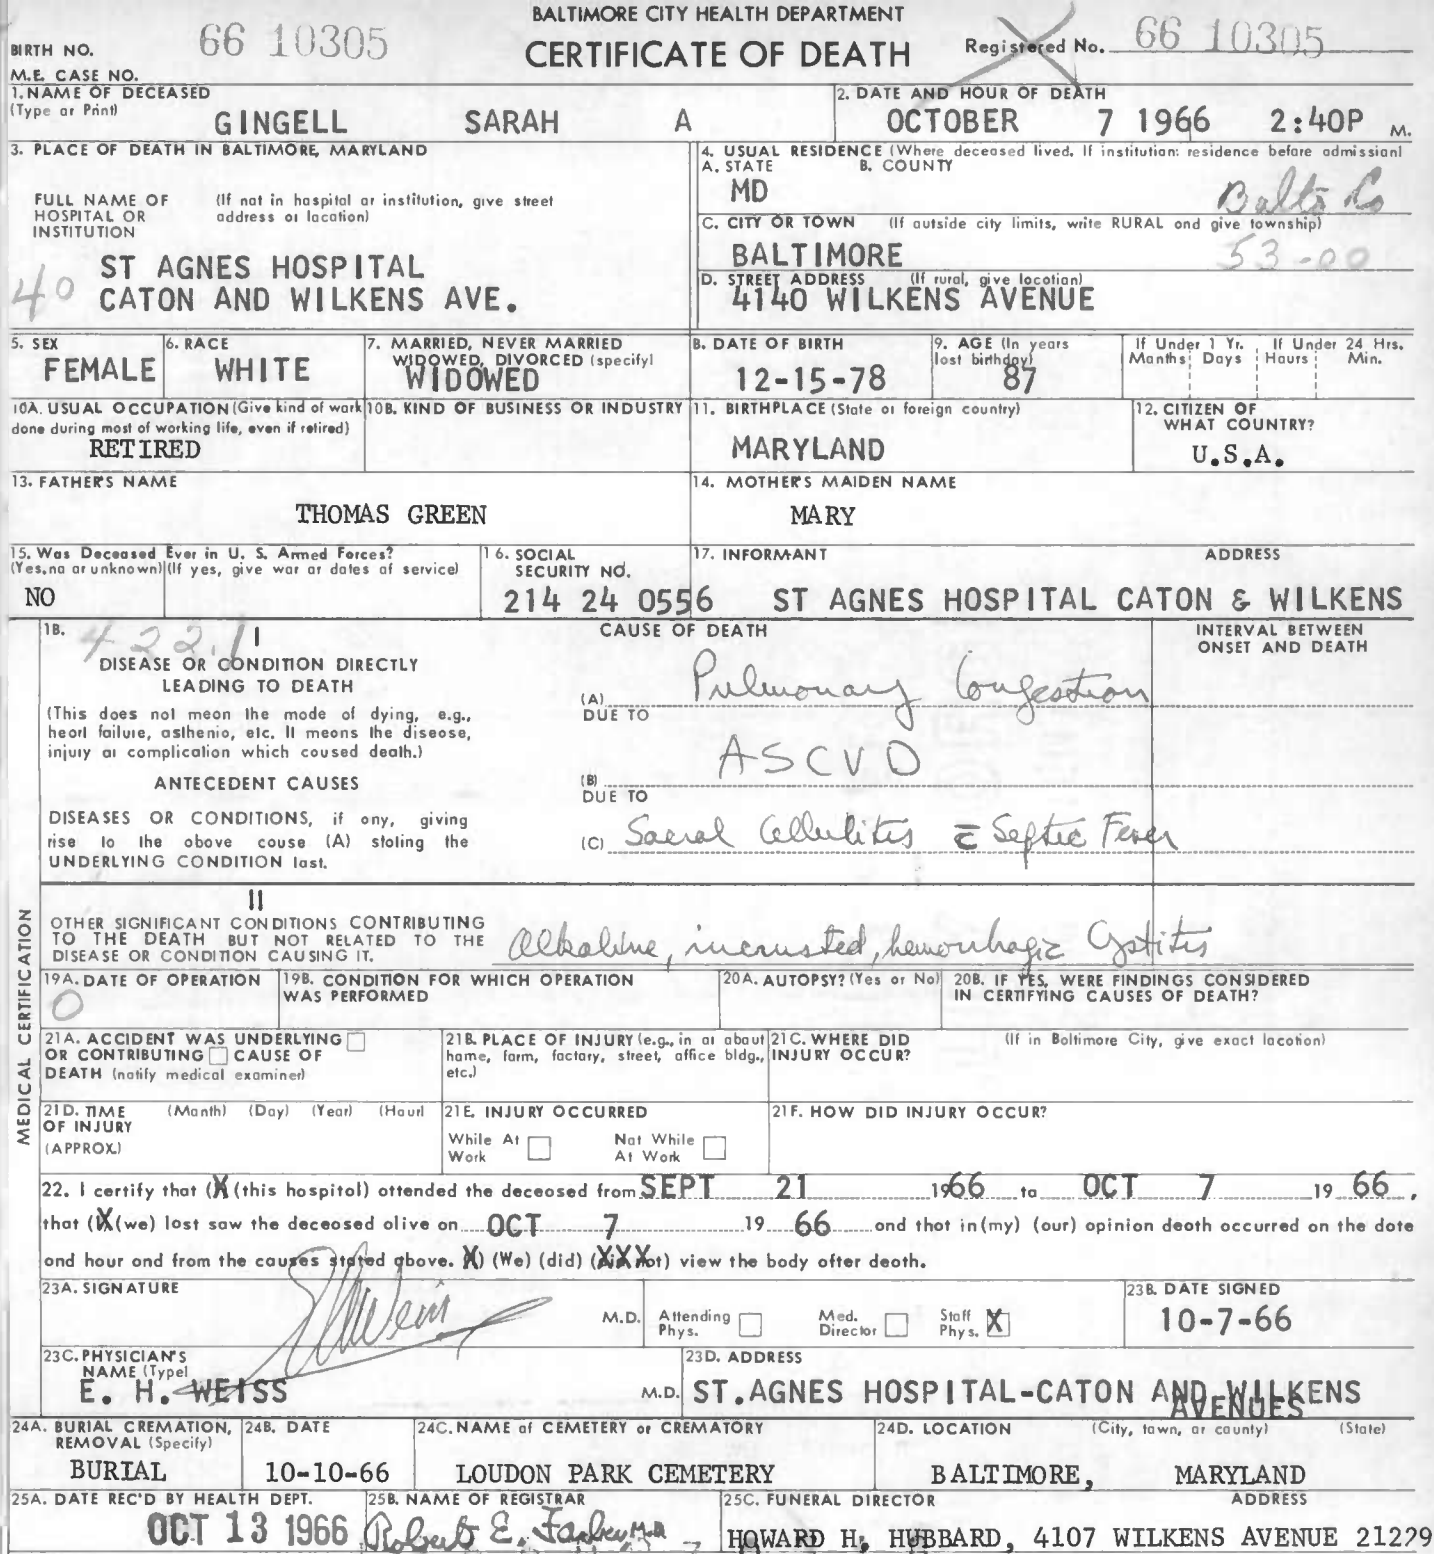 BALTIMORE CITY HEALTH DEPARTMENT
BIRTH NO. 66 10305 CERTIFICATE OF DEATH Registered No. 66 10305
M.E. CASE NO.
1. NAME OF DECEASED (Type or Print) GINGELL SARAH A
2. DATE AND HOUR OF DEATH OCTOBER 7 1966 2:40P M.
3. PLACE OF DEATH IN BALTIMORE, MARYLAND
FULL NAME OF HOSPITAL OR INSTITUTION (If not in hospital or institution, give street address or location)
40 ST AGNES HOSPITAL
CATON AND WILKENS AVE.
4. USUAL RESIDENCE (Where deceased lived. If institution: residence before admission)
A. STATE B. COUNTY
MD Balto Co
C. CITY OR TOWN (If outside city limits, write RURAL and give township)
BALTIMORE 53-00
D. STREET ADDRESS (If rural, give location)
4140 WILKENS AVENUE
5. SEX FEMALE
6. RACE WHITE
7. MARRIED, NEVER MARRIED WIDOWED, DIVORCED (specify) WIDOWED
8. DATE OF BIRTH 12-15-78
9. AGE (In years last birthday) 87
If Under 1 Yr. Months Days
If Under 24 Hrs. Hours Min.
10A. USUAL OCCUPATION (Give kind of work done during most of working life, even if retired) RETIRED
10B. KIND OF BUSINESS OR INDUSTRY
11. BIRTHPLACE (State or foreign country) MARYLAND
12. CITIZEN OF WHAT COUNTRY? U.S.A.
13. FATHER'S NAME THOMAS GREEN
14. MOTHER'S MAIDEN NAME MARY
15. Was Deceased Ever in U. S. Armed Forces? (Yes, no or unknown) (If yes, give war or dates of service) NO
16. SOCIAL SECURITY NO. 214 24 0556
17. INFORMANT ADDRESS ST AGNES HOSPITAL CATON & WILKENS
MEDICAL CERTIFICATION
18. 422.1 I CAUSE OF DEATH INTERVAL BETWEEN ONSET AND DEATH
DISEASE OR CONDITION DIRECTLY LEADING TO DEATH
(This does not mean the mode of dying, e.g., heart failure, asthenia, etc. It means the disease, injury or complication which caused death.)
(A) Pulmonary Congestion
DUE TO
ANTECEDENT CAUSES
(B) ASCVD
DUE TO
DISEASES OR CONDITIONS, if any, giving rise to the above cause (A) stating the UNDERLYING CONDITION last.
(C) Sacral Cellulitis c̄ Septic Fever
II
OTHER SIGNIFICANT CONDITIONS CONTRIBUTING TO THE DEATH BUT NOT RELATED TO THE DISEASE OR CONDITION CAUSING IT.
Alkaline, incrusted, hemorrhagic Cystitis
19A. DATE OF OPERATION 0
19B. CONDITION FOR WHICH OPERATION WAS PERFORMED
20A. AUTOPSY? (Yes or No)
20B. IF YES, WERE FINDINGS CONSIDERED IN CERTIFYING CAUSES OF DEATH?
21A. ACCIDENT WAS UNDERLYING OR CONTRIBUTING CAUSE OF DEATH (notify medical examiner)
21B. PLACE OF INJURY (e.g., in or about home, farm, factory, street, office bldg., etc.)
21C. WHERE DID INJURY OCCUR? (If in Baltimore City, give exact location)
21D. TIME OF INJURY (APPROX.) (Month) (Day) (Year) (Hour)
21E. INJURY OCCURRED While At Work Not While At Work
21F. HOW DID INJURY OCCUR?
22. I certify that (X (this hospital) attended the deceased from SEPT 21 1966 to OCT 7 19 66,
that (X (we) last saw the deceased alive on OCT 7 19 66 and that in (my) (our) opinion death occurred on the date
and hour and from the causes stated above. X) (We) (did) (XXXot) view the body after death.
23A. SIGNATURE EHWeiss M.D. Attending Phys. Med. Director Staff Phys. X
23B. DATE SIGNED 10-7-66
23C. PHYSICIAN'S NAME (Type) E. H. WEISS M.D.
23D. ADDRESS ST.AGNES HOSPITAL-CATON AND WILKENS
AVENUES
24A. BURIAL CREMATION, REMOVAL (Specify) BURIAL
24B. DATE 10-10-66
24C. NAME of CEMETERY or CREMATORY LOUDON PARK CEMETERY
24D. LOCATION (City, town, or county) (State) BALTIMORE, MARYLAND
25A. DATE REC'D BY HEALTH DEPT. OCT 13 1966
25B. NAME OF REGISTRAR Robert E. Farber M.D.
25C. FUNERAL DIRECTOR ADDRESS HOWARD H. HUBBARD, 4107 WILKENS AVENUE 21229